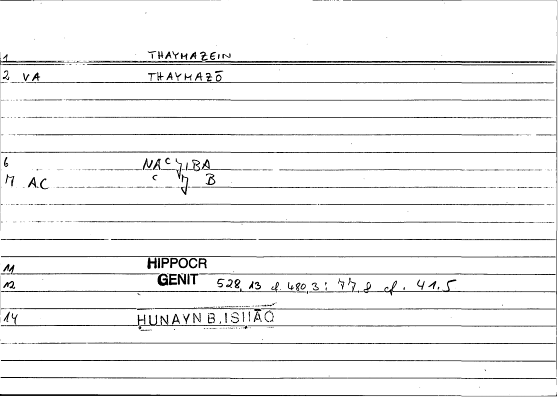 1 THAYMAZEIN
2 VA THAYMAZŌ
6
M AC B
11 HIPPOCR
12 GENIT 528, 13 cf. 480, 3: 77, 8 cf. 41.5
14 HUNAYN B. ISḤĀQ